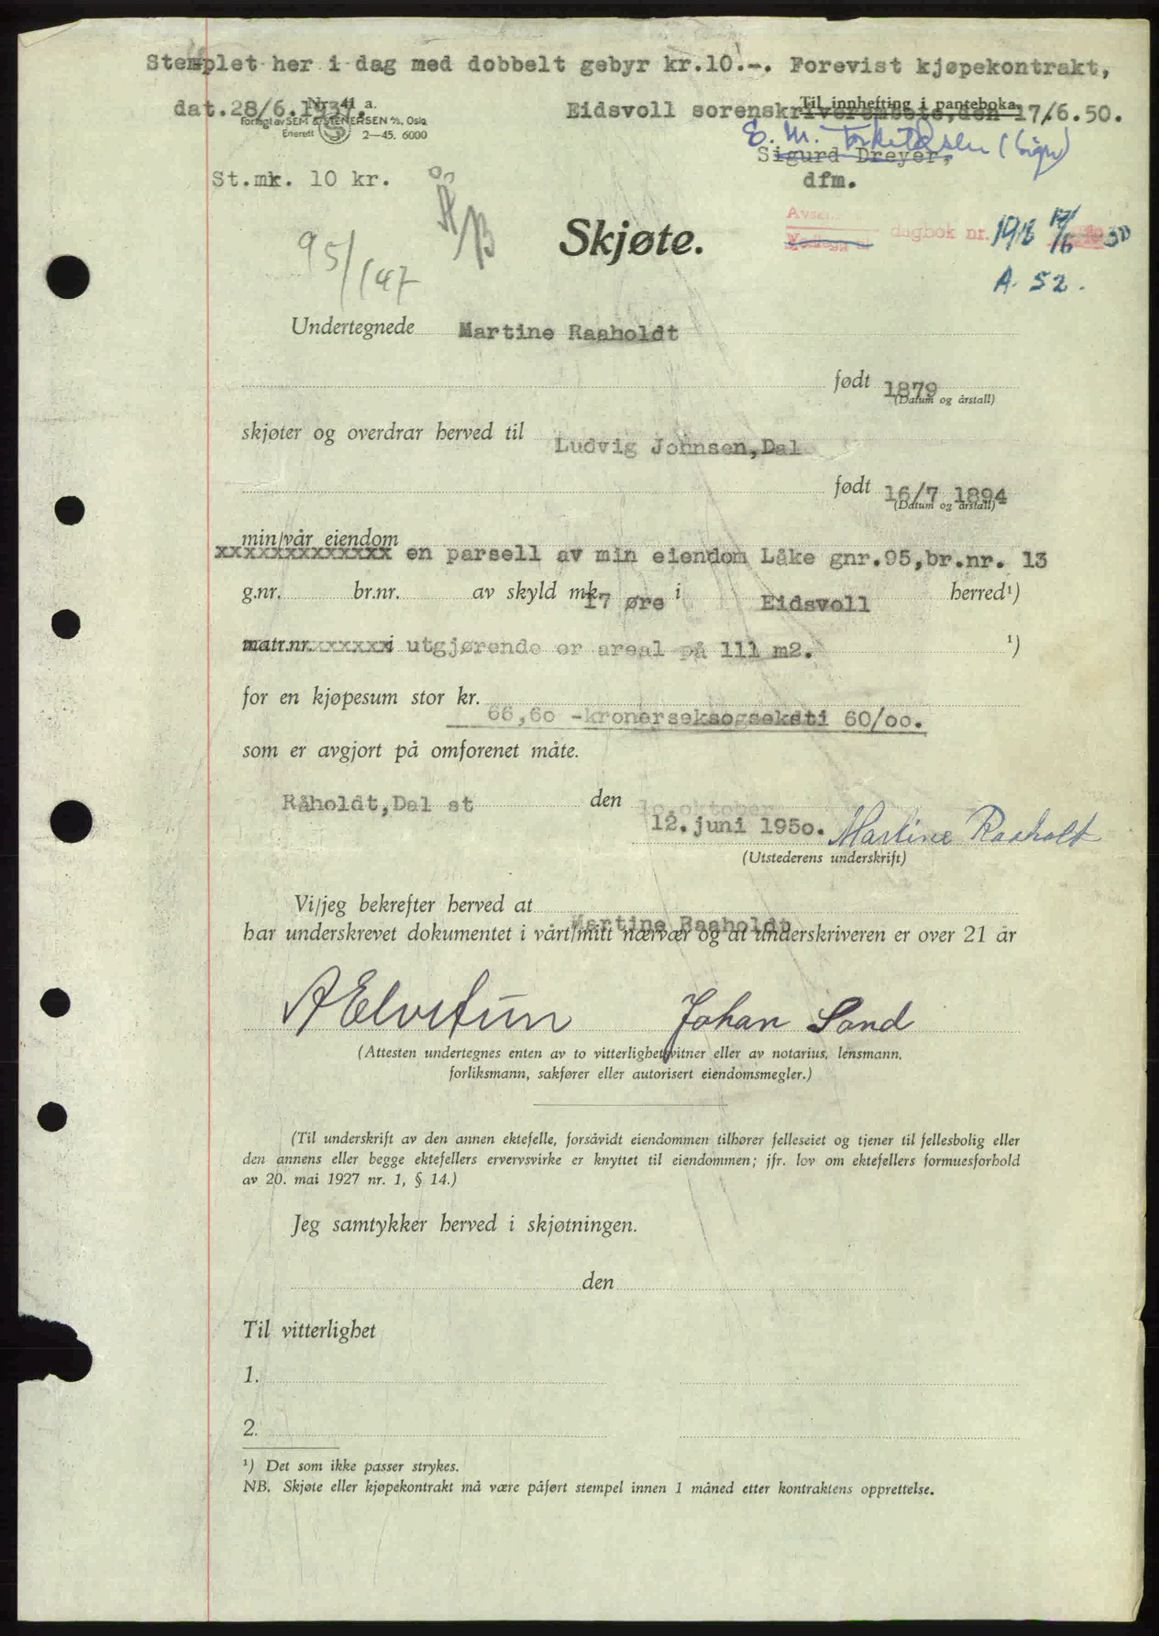 Stemplet her i dag med dobbelt gebyr kr.10.-. Forevist kjøpekontrakt,
dat.28/6.1937. Eidsvoll sorenskriverembete, den 17/6.50.
Nr. 41 a.
Til innhefting i panteboka.
Forlagt av SEM & STENERSEN A/S, Oslo
Enerett 2—45. 6000
Sigurd Dreyer,
St.mk. 10 kr.
dfm.
A/B
95/147
Skjøte.
dagbok nr. 1918 17/6 1950
A. 52.
Undertegnede Martine Raaholdt
født 1879
(Datum og årstall)
skjøter og overdrar herved til Ludvig Johnsen, Dal
født 16/7 1894
(Datum og årstall)
min/vår eiendom
xxxxxxxxxxxxx en parsell av min eiendom Låke gnr.95, br.nr. 13
g.nr. br.nr. av skyld mk. 17 øre i Eidsvoll herred¹)
matr.nr.xxxxxxxi utgjørende er areal på 111 m2. ¹)
for en kjøpesum stor kr.
66,60 -kronerseksogseksti 60/oo.
som er avgjort på omforenet måte.
Råholdt, Dal st den 1o.oktober
12.juni 195o. Martine Raaholt
(Utstederens underskrift)
Vi/jeg bekrefter herved at Martine Raaholdt
har underskrevet dokumentet i vårt/mitt nærvær og at underskriveren er over 21 år
A Elvestun Johan Sand
(Attesten undertegnes enten av to vitterlighetsvitner eller av notarius, lensmann,
forliksmann, sakfører eller autorisert eiendomsmegler.)
(Til underskrift av den annen ektefelle, forsåvidt eiendommen tilhører felleseiet og tjener til fellesbolig eller
den annens eller begge ektefellers ervervsvirke er knyttet til eiendommen; jfr. lov om ektefellers formuesforhold
av 20. mai 1927 nr. 1, § 14.)
Jeg samtykker herved i skjøtningen.
den
Til vitterlighet
1.
2.
¹) Det som ikke passer strykes.
NB. Skjøte eller kjøpekontrakt må være påført stempel innen 1 måned etter kontraktens opprettelse.